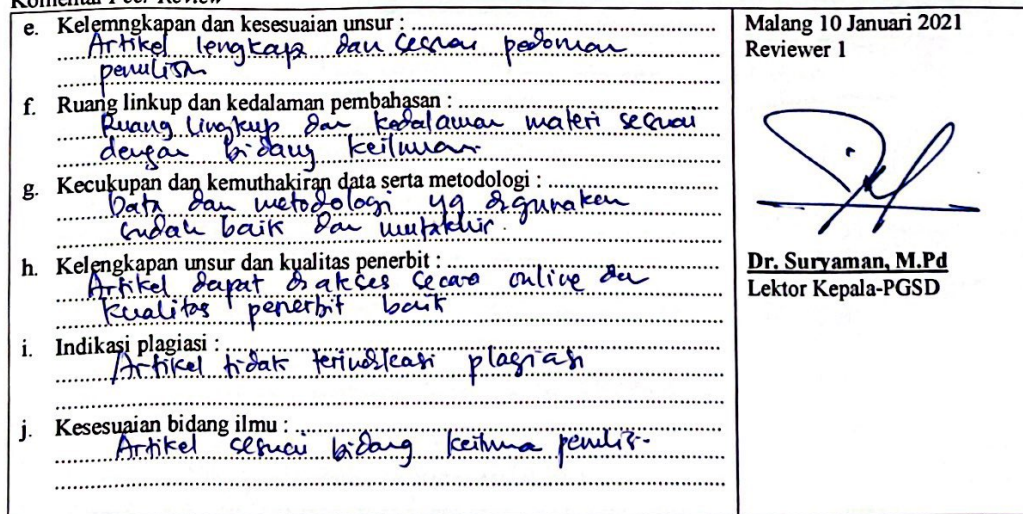 Komentar Peer Review
e. Kelemngkapan dan kesesuaian unsur :
Artikel lengkap dan sesuai pedoman
penulisan
f. Ruang linkup dan kedalaman pembahasan :
Ruang lingkup dan kedalaman materi sesuai
dengan bidang keilmuan
g. Kecukupan dan kemuthakiran data serta metodologi :
Data dan metodologi yg digunakan
sudah baik dan mutakhir.
h. Kelengkapan unsur dan kualitas penerbit :
Artikel dapat diakses secara online dan
kualitas penerbit baik
i. Indikasi plagiasi :
Artikel tidak terindikasi plagiasi
j. Kesesuaian bidang ilmu :
Artikel sesuai bidang keilmua penulis.
Malang 10 Januari 2021
Reviewer 1
Dr. Suryaman, M.Pd
Lektor Kepala-PGSD